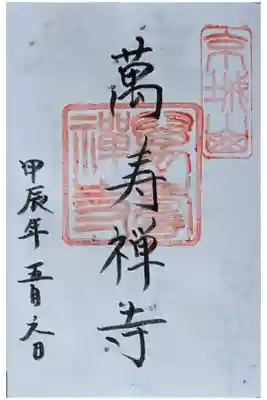 京城山
萬寿禅寺
甲辰年 五月元日